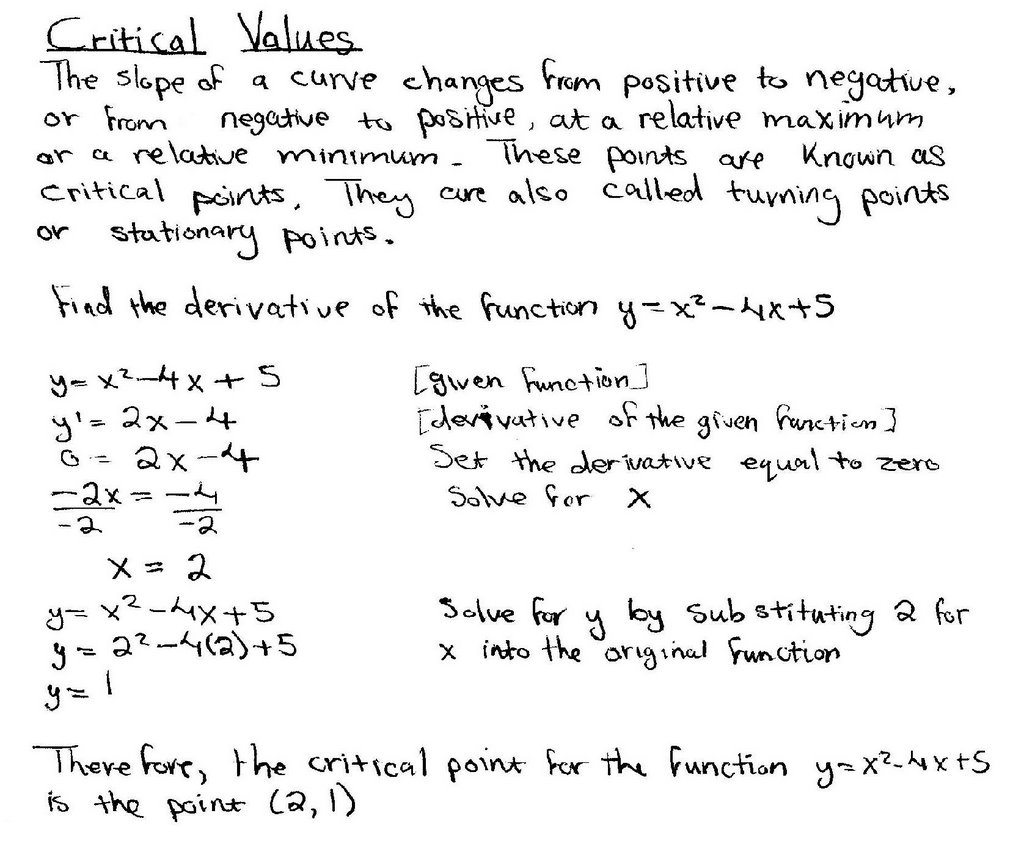 Critical Values
The slope of a curve changes from positive to negative,
or from negative to positive, at a relative maximum
or a relative minimum. These points are known as
critical points. They are also called turning points
or stationary points.
Find the derivative of the function y = x² - 4x + 5
y = x² - 4x + 5 [given function]
y' = 2x - 4 [derivative of the given function]
0 = 2x - 4 Set the derivative equal to zero
-2x = -4 Solve for x
-2 -2
x = 2
y = x² - 4x + 5 Solve for y by substituting 2 for
y = 2² - 4(2) + 5 x into the original function
y = 1
Therefore, the critical point for the function y = x² - 4x + 5
is the point (2, 1)